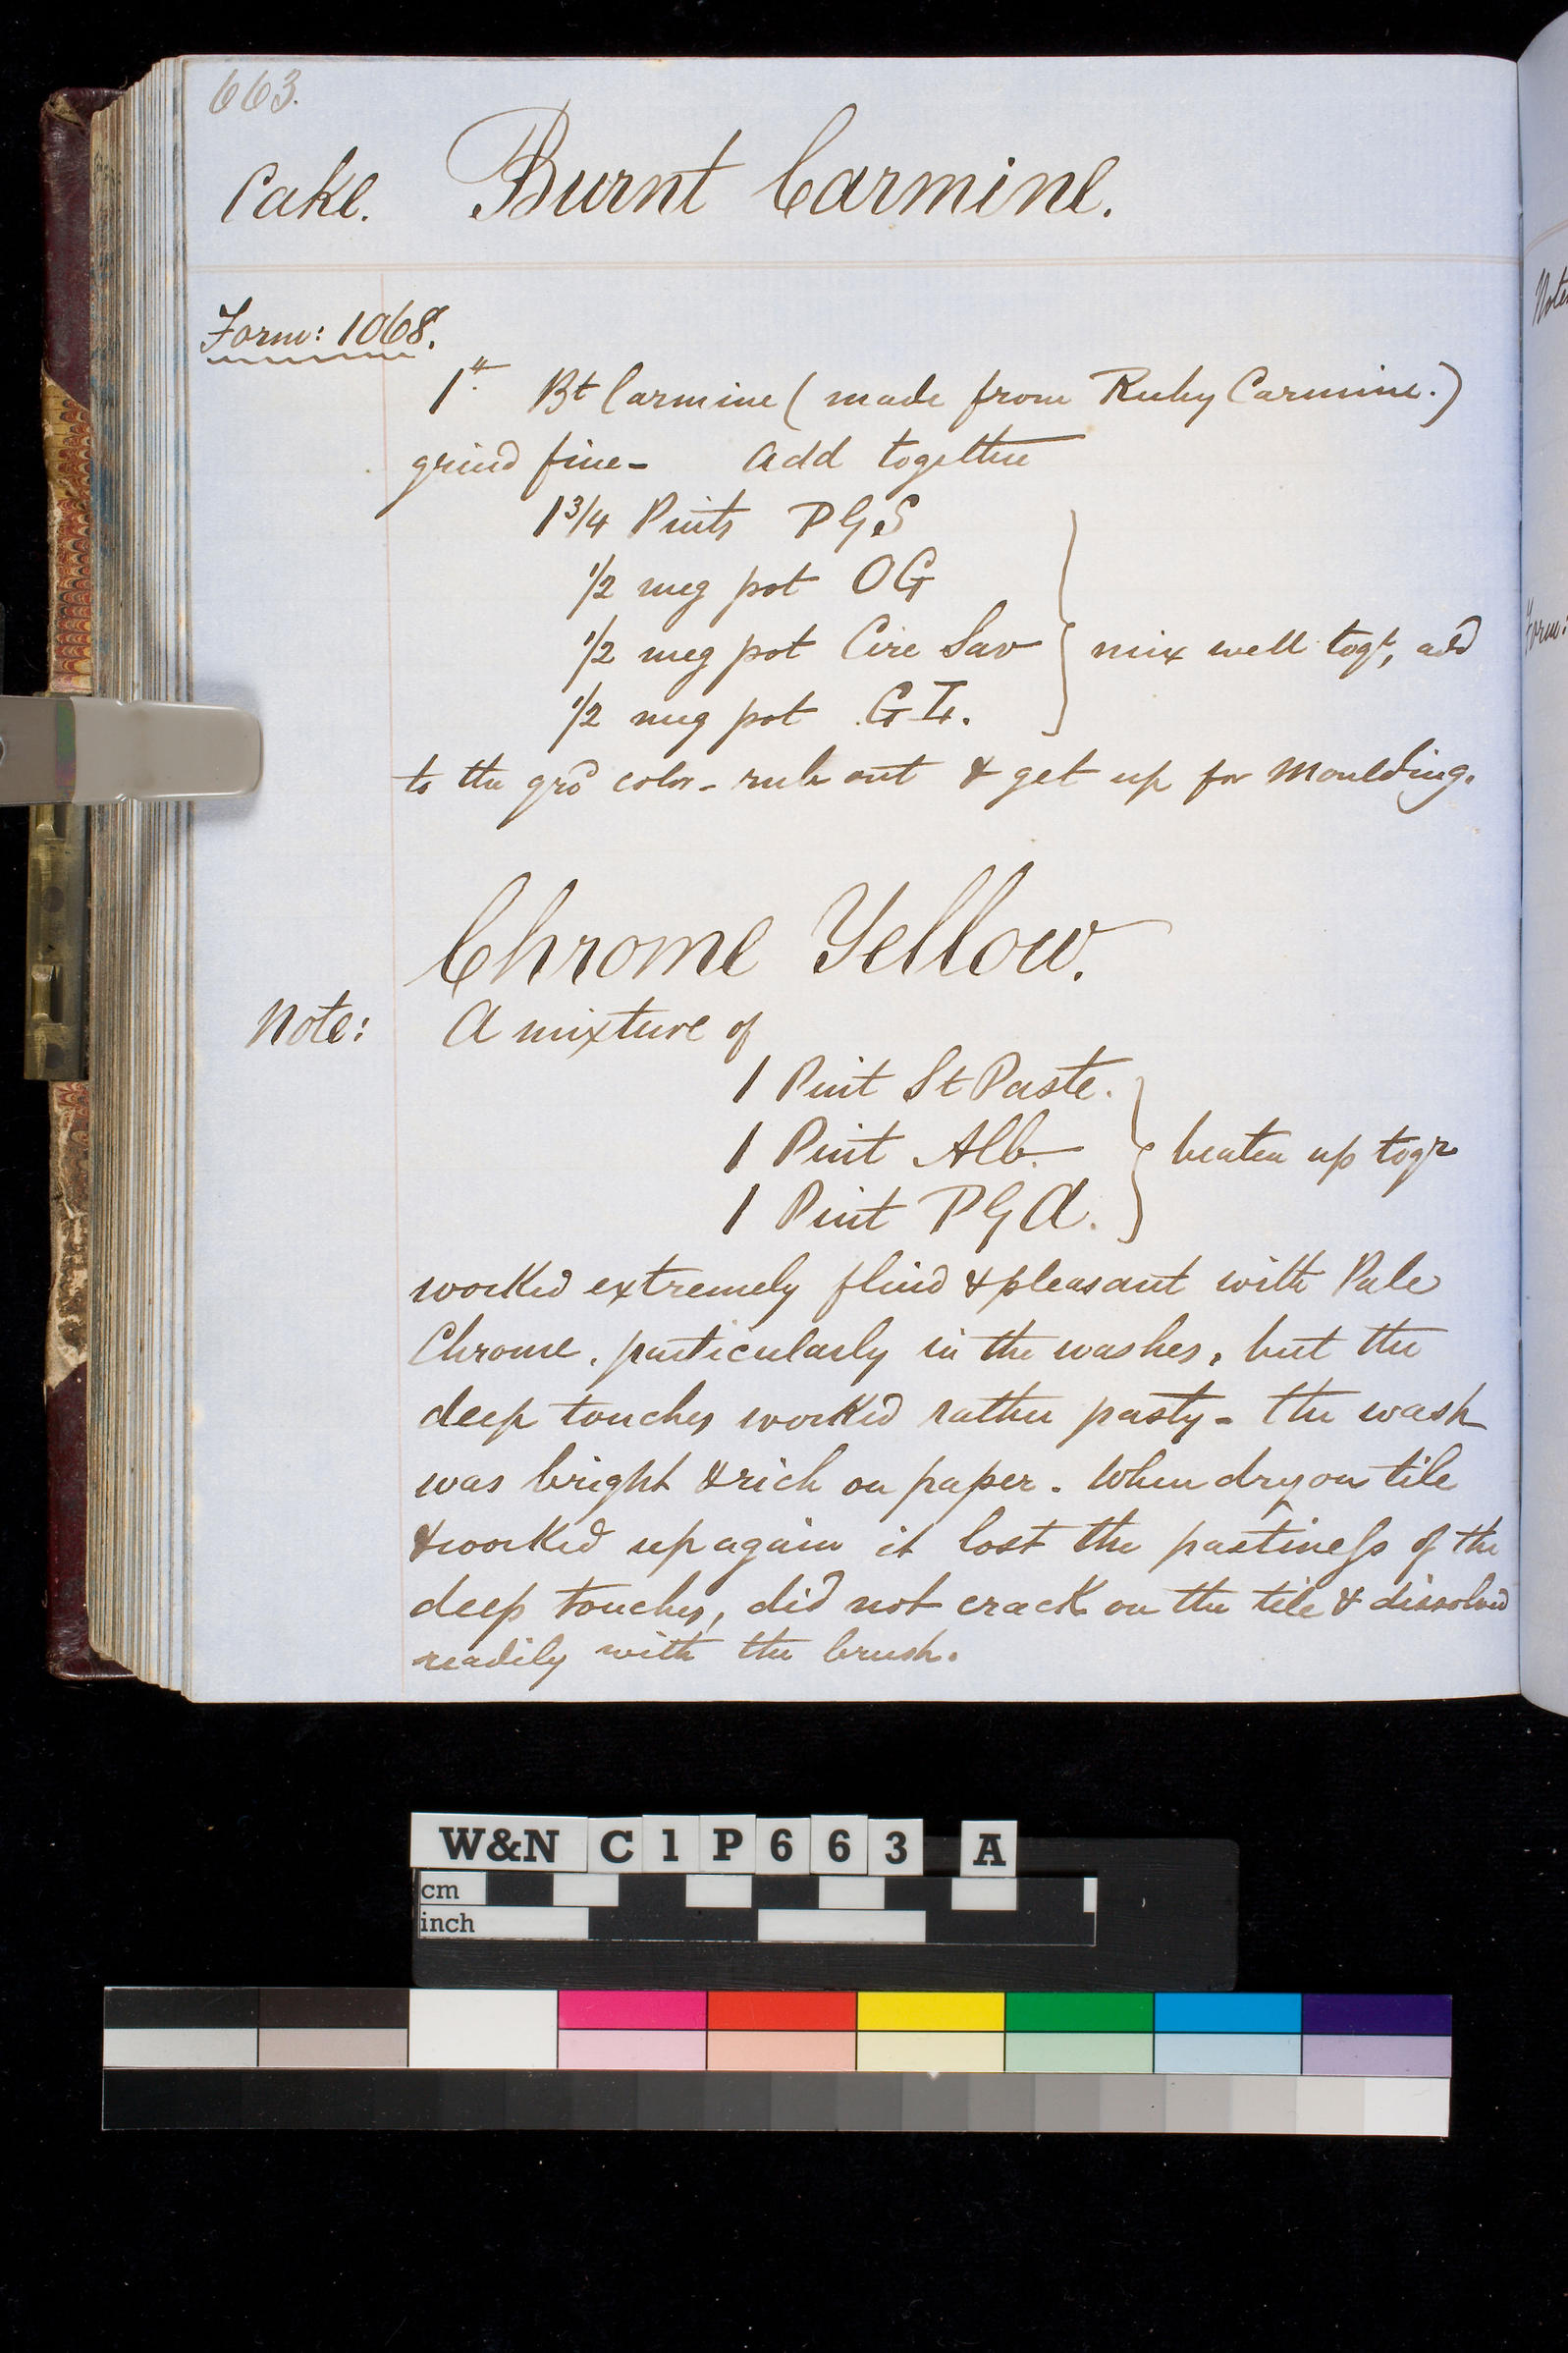 663.
Cake. Burnt Carmine.
Form: 1068.
1# Bt Carmine (made from Ruby Carmine.)
grind fine - add together
1 3/4 Pints PGS
1/2 meg pot OG
1/2 meg pot Cire Sav } mix well togr, add
1/2 meg pot GL.
to the grd color - rub out & get up for Moulding.
Chrome Yellow.
Note: A mixture of
1 Pint St Paste.
1 Pint Alb. } beaten up togr
1 Pint PGA.
worked extremely fluid & pleasant with Pale
Chrome. particularly in the washes, but the
deep touches worked rather pasty - the wash
was bright & rich on paper. When dry on tile
& worked up again it lost the pastiness of the
deep touches, did not crack on the tile & dissolved
readily with the brush.
Note
Form:
W&N C1P663 A
cm
inch